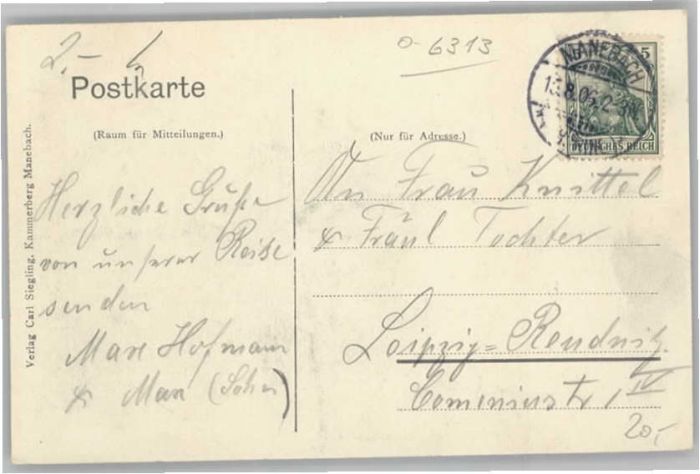 2.-
o-6313
Postkarte
MANEBACH
13.8.06.2-3N
5
DEUTSCHES REICH
(Raum für Mitteilungen.)
(Nur für Adresse.)
Herzliche Grüße
von unserer Reise
senden
Max Hofmann
& Max (Sohn)
An Frau Knittel
& Fräul Tochter
Leipzig=Reudnitz
Comeniusstr, IV
20,-
Verlag Carl Siegling, Kammerberg Manebach.